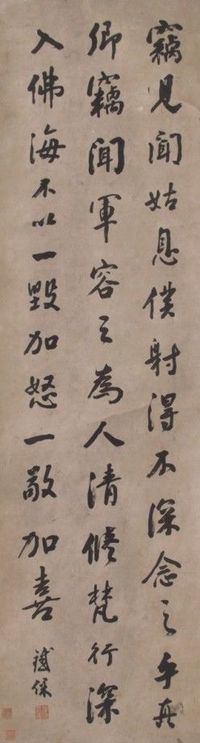 竊見聞姑息僕射得不深念之乎真
卿竊聞軍容之為人清修梵行深
入佛海不以一毀加怒一敬加喜
鐵保